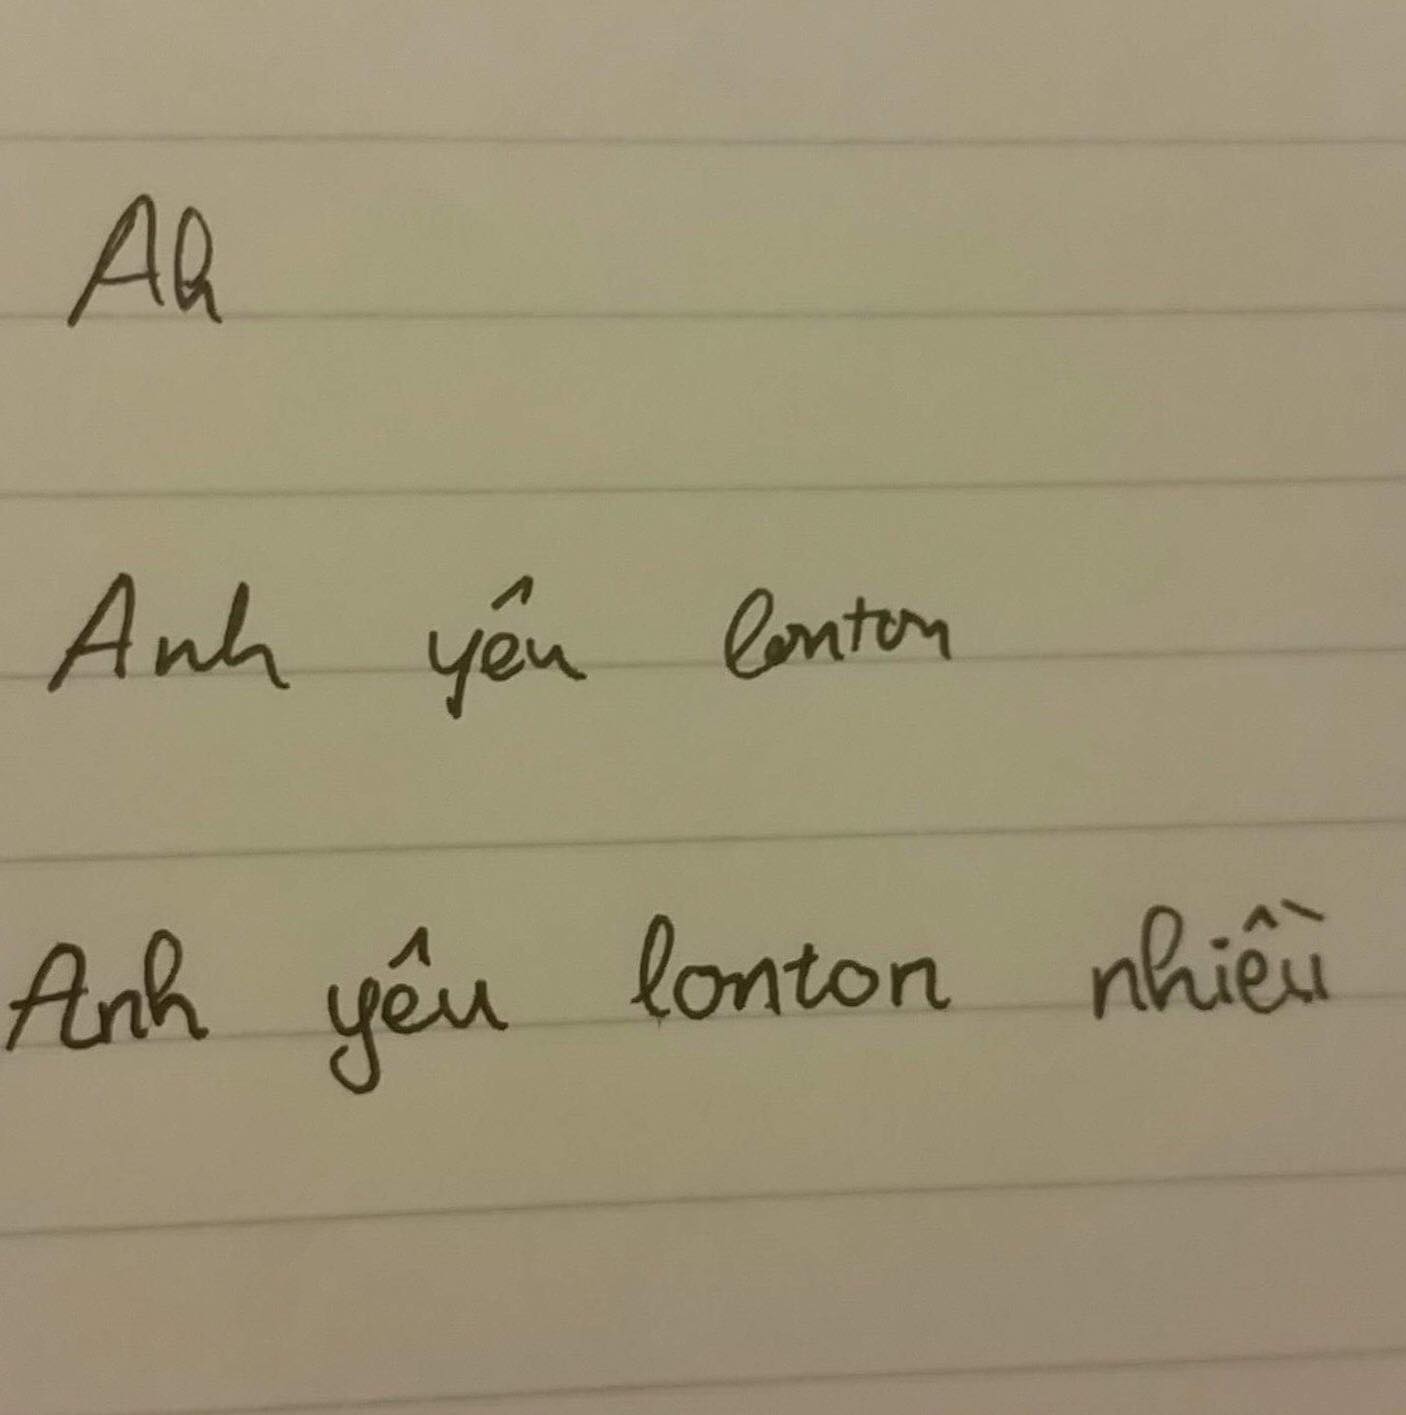 Ah
Anh yêu lonton
Anh yêu lonton nhiều